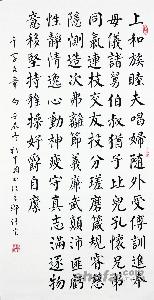 上和下睦夫唱婦隨外受傅訓入奉
母儀諸姑伯叔猶子比兒孔懷兄弟
同氣連枝交友投分切磨箴規仁慈
隱惻造次弗離節義廉退顛沛匪虧
性靜情逸心動神疲守真志滿逐物
意移堅持雅操好爵自縻
千字文章句